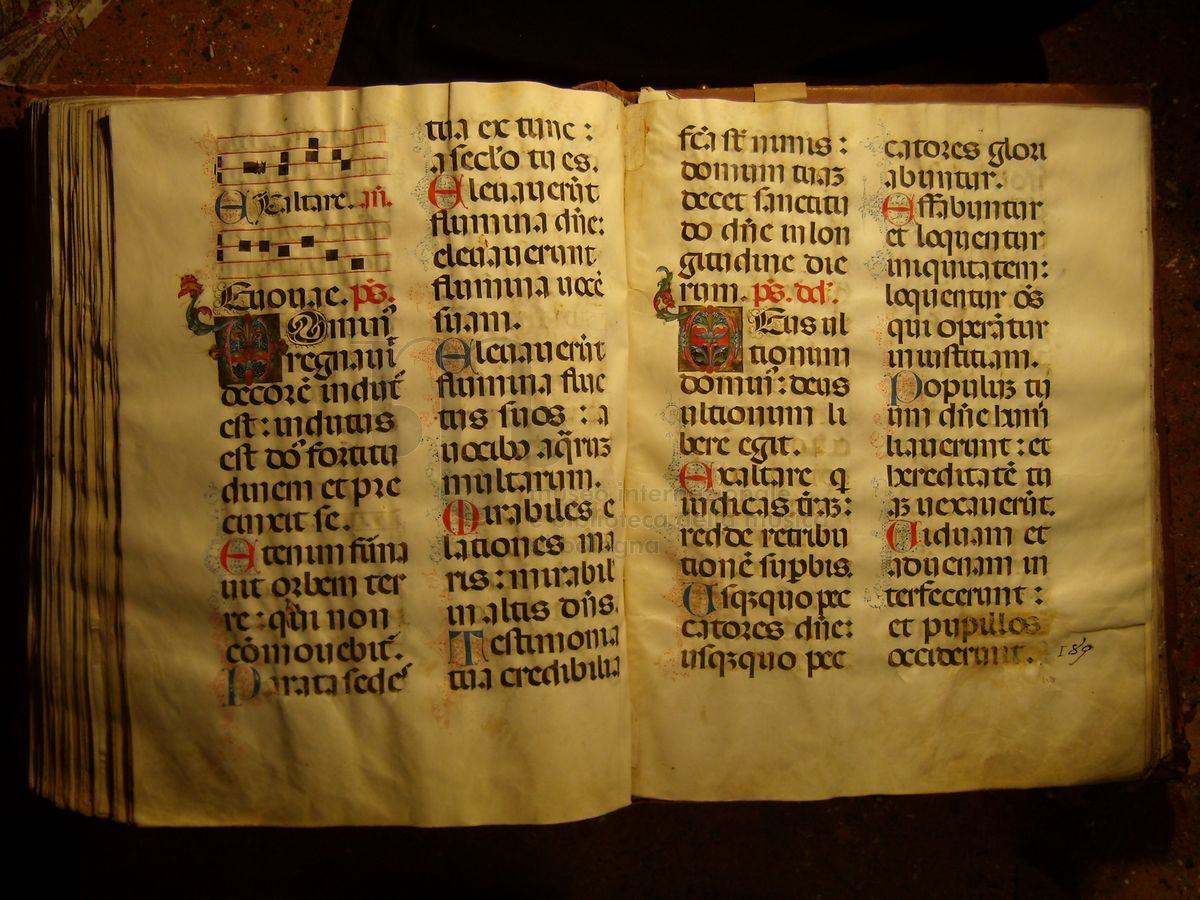 Exaltare. añ.
Euouae. ps̃.
Dominꝰ
regnauit
decorē indutꝰ
est : indutus
est dñs fortitu
dinem et pre
cinxit se.
Etenim firma
uit orbem ter
re : qui non
cōmouebit᷑.
Parata sedes
tua ex tunc :
a seclo tu es.
Eleuauerūt
flumina dñe :
eleuauerunt
flumina uocē
suam.
Eleuauerūt
flumina fluc
tus suos : a
uocibꝰ aq̄rꝫ
multarum.
Mirabiles e
lationes ma
ris : mirabil̕
in altis dñs.
Testimonia
tua credibilia
fc̄a st̄ nimis :
domum tuaꝫ
decet sanctitu
do dñe in lon
gitudine die
rum. ps̃. dd̕.
Deus ul
tionum
dominꝰ : deus
ultionum li
bere egit.
Exaltare q̇
iudicas t̄raꝫ :
redde retribu
tionē suꝑbis.
Usqꝫquo pec
catores dñe :
usqꝫquo pec
catores glori
abuntur.
Effabuntur
et loquentur
iniquitatem :
loquentur oēs
qui operātur
iniustitiam.
Populuꝫ tu
um dñe humi
liauerunt : et
hereditatē tu
aꝫ uexauerūt.
Uiduam et
aduenam in
terfecerunt :
et pupillos
occiderunt.
189
museo internazionale
e biblioteca della musica
bologna